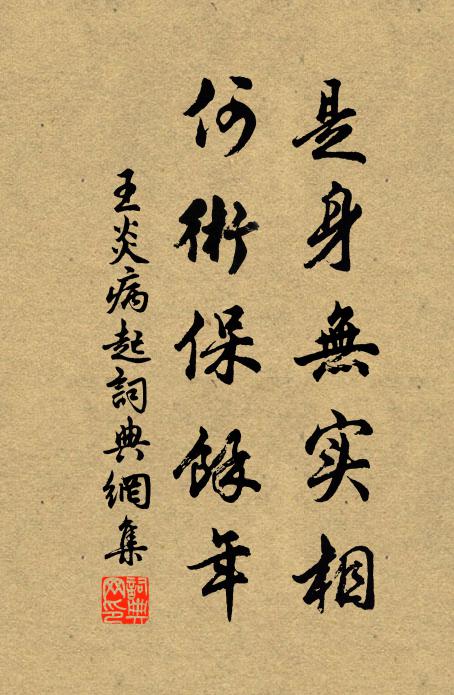 是身無实相
何術保餘年
王炎病起詞典網集
詞典網印